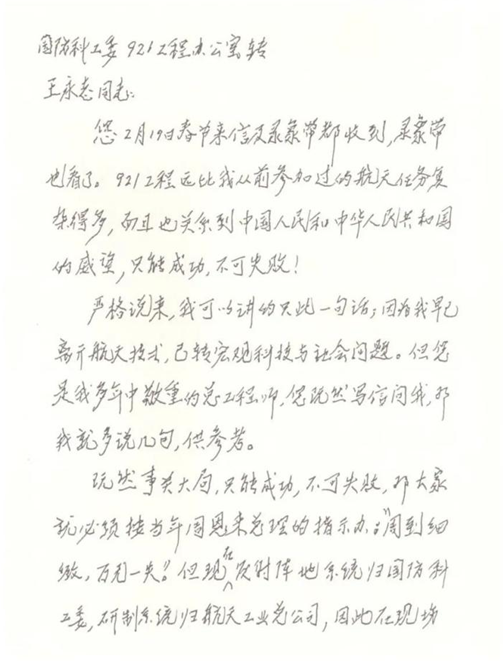 国防科工委921工程办公室转
王永志同志:
您2月19日春节来信及录象带都收到,录象带
也看了。921工程远比我从前参加过的航天任务复
杂得多,而且也关系到中国人民和中华人民共和国
的威望,只能成功,不可失败!
严格说来,我可以讲的只此一句话;因为我早已
离开航天技术,已转宏观科技与社会问题。但您
是我多年中敬重的总工程师,您既然写信问我,那
我就多说几句,供参考。
既然事关大局,只能成功,不可失败,那大家
就必须按当年周恩来总理的指示办:“周到细
致,万无一失”!但现在发射阵地系统归国防科
工委,研制系统归航天工业总公司,因此在现场